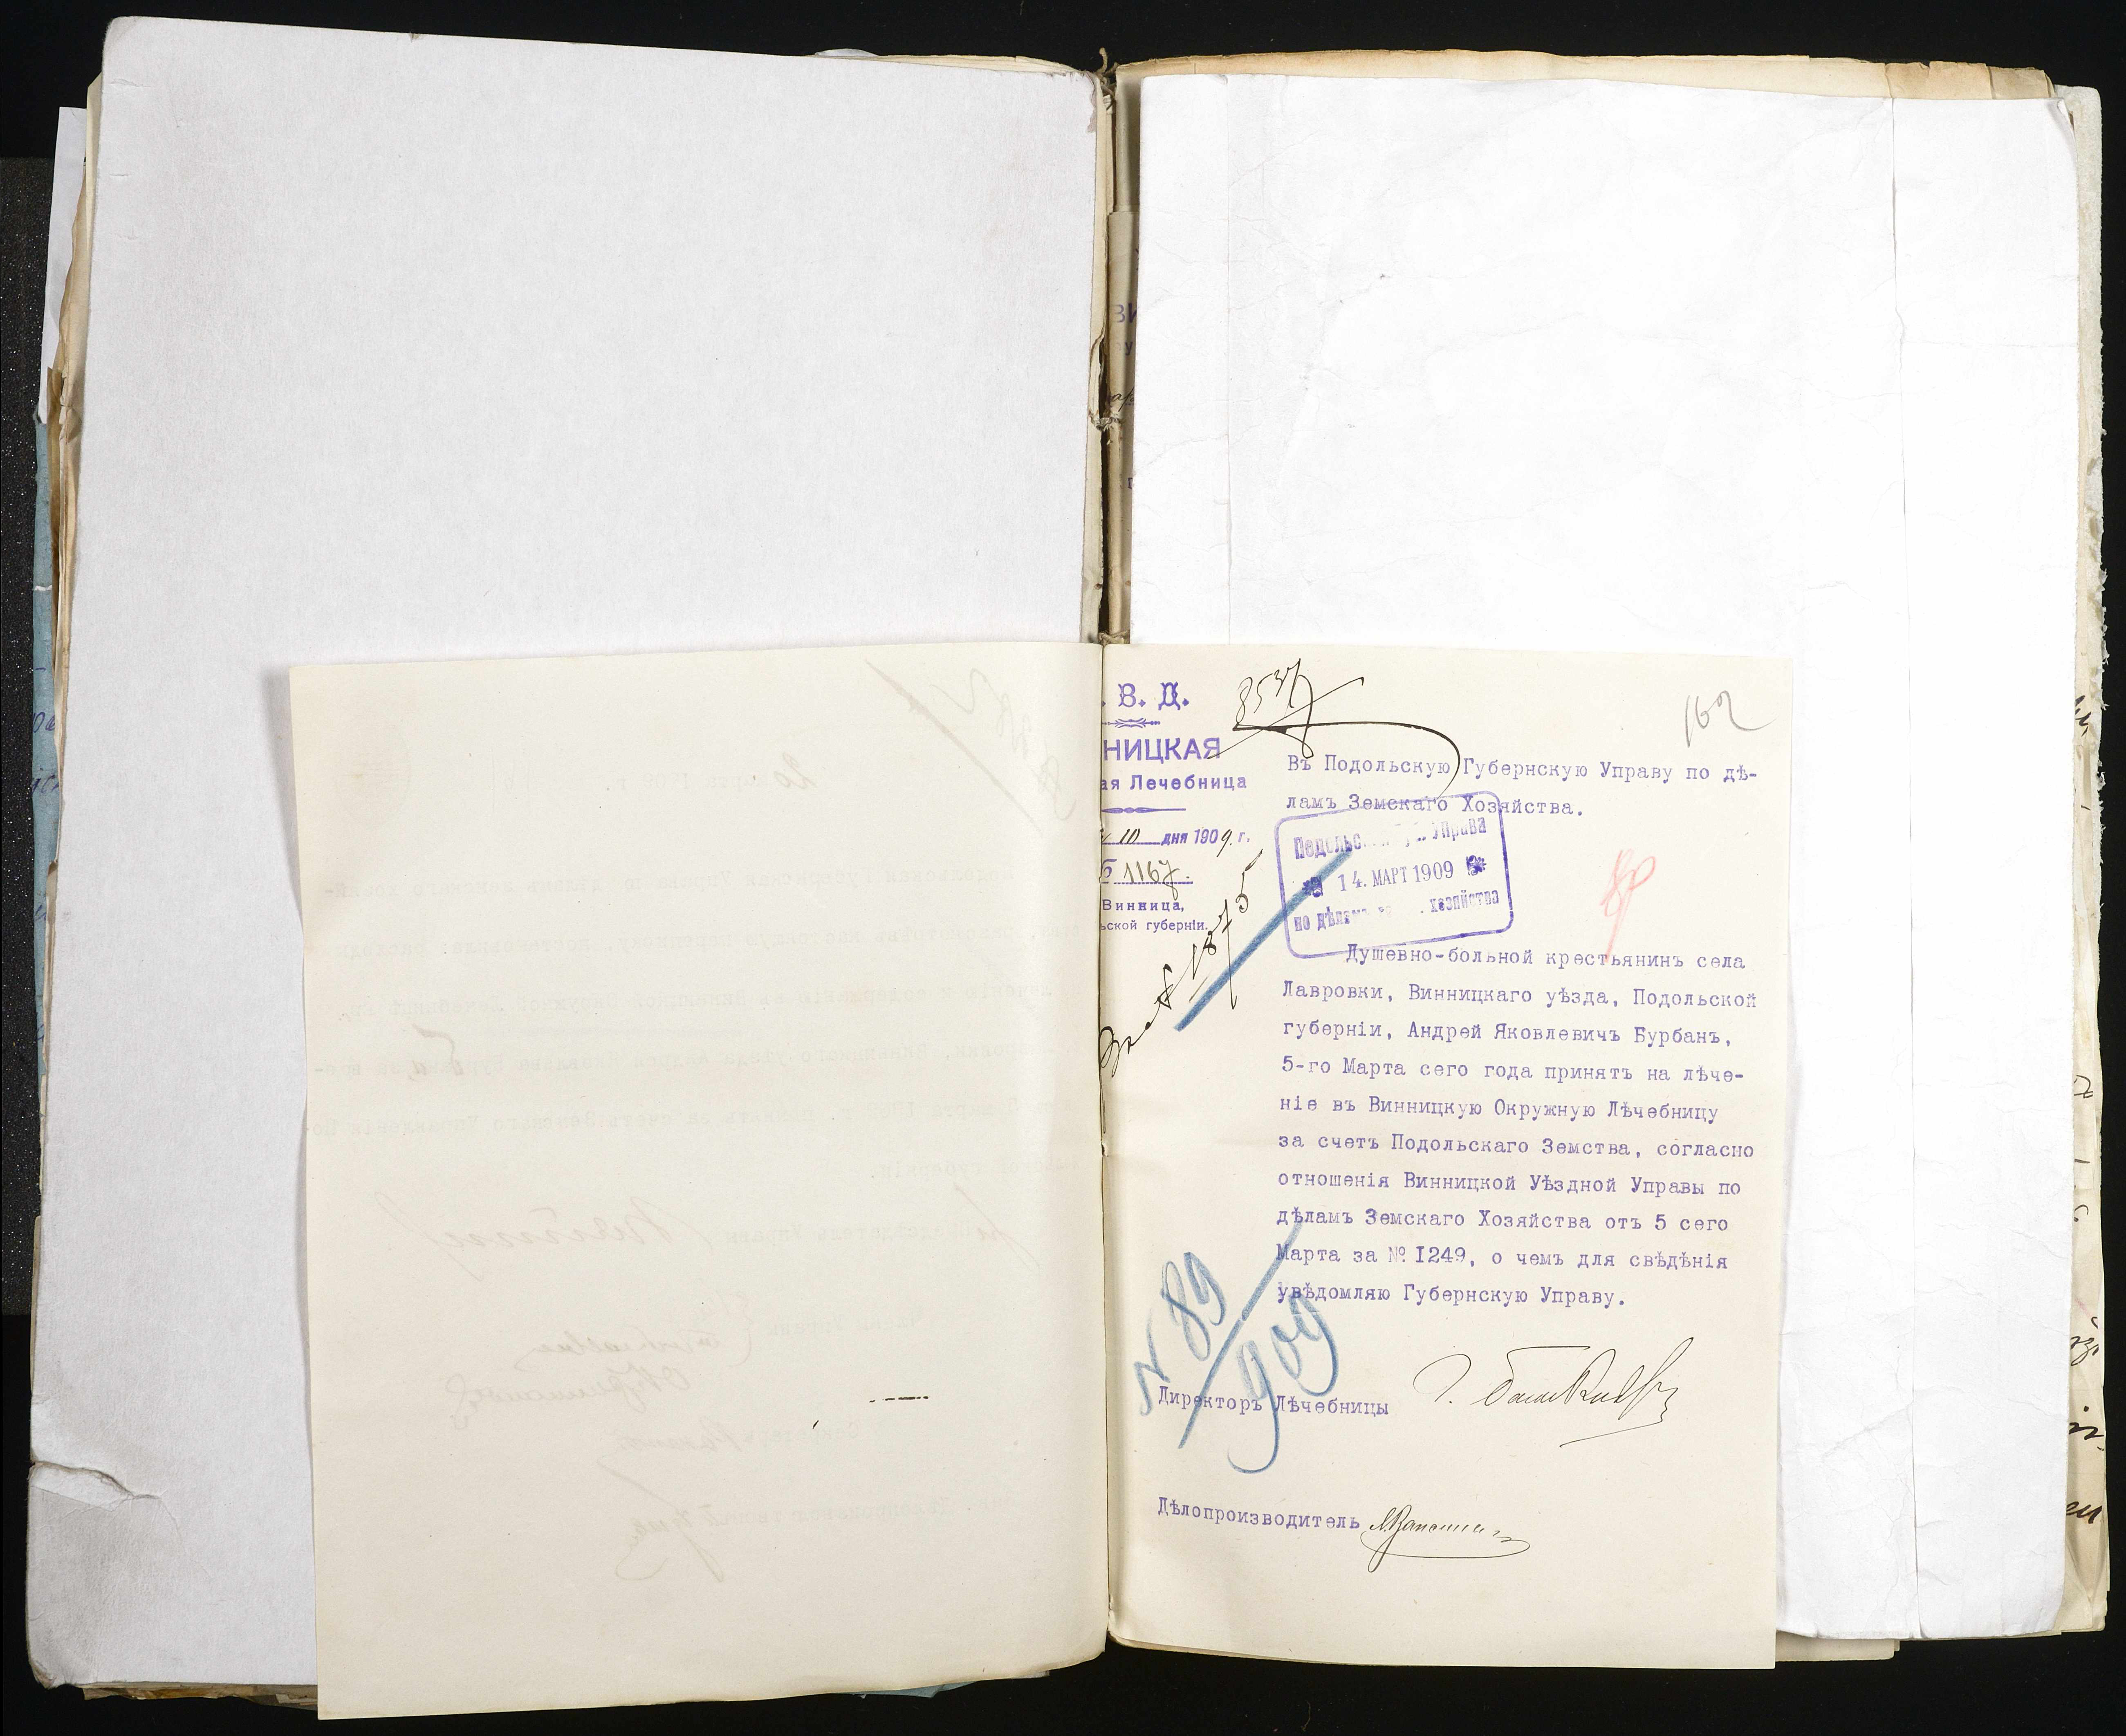 . В. Д.
НИЦКАЯ
ая Лечебница
10 дня 1909 г.
1167.
Винница,
ьской губерніи.
8537
162
Въ Подольскую Губернскую Управу по дѣ-
ламъ Земскаго Хозяйства.
Управа
14. МАРТ 1909
по дѣламъ хозяйства
№ 1875
Душевно-больной крестьянинъ села
Лавровки, Винницкаго уѣзда, Подольской
губерніи, Андрей Яковлевичъ Бурбанъ,
5-го Марта сего года принятъ на лѣче-
ніе въ Винницкую Окружную Лѣчебницу
за счетъ Подольскаго Земства, согласно
отношенія Винницкой Уѣздной Управы по
дѣламъ Земскаго Хозяйства отъ 5 сего
Марта за № I249, о чемъ для свѣдѣнія
увѣдомляю Губернскую Управу.
№ 89
909
Директоръ Лѣчебницы
Дѣлопроизводитель